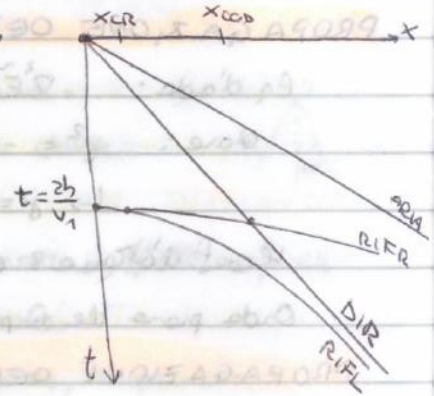 x_CR x_CGD x
t = 2h/v₁
ARIA
RIFR
DIR
RIFL
t